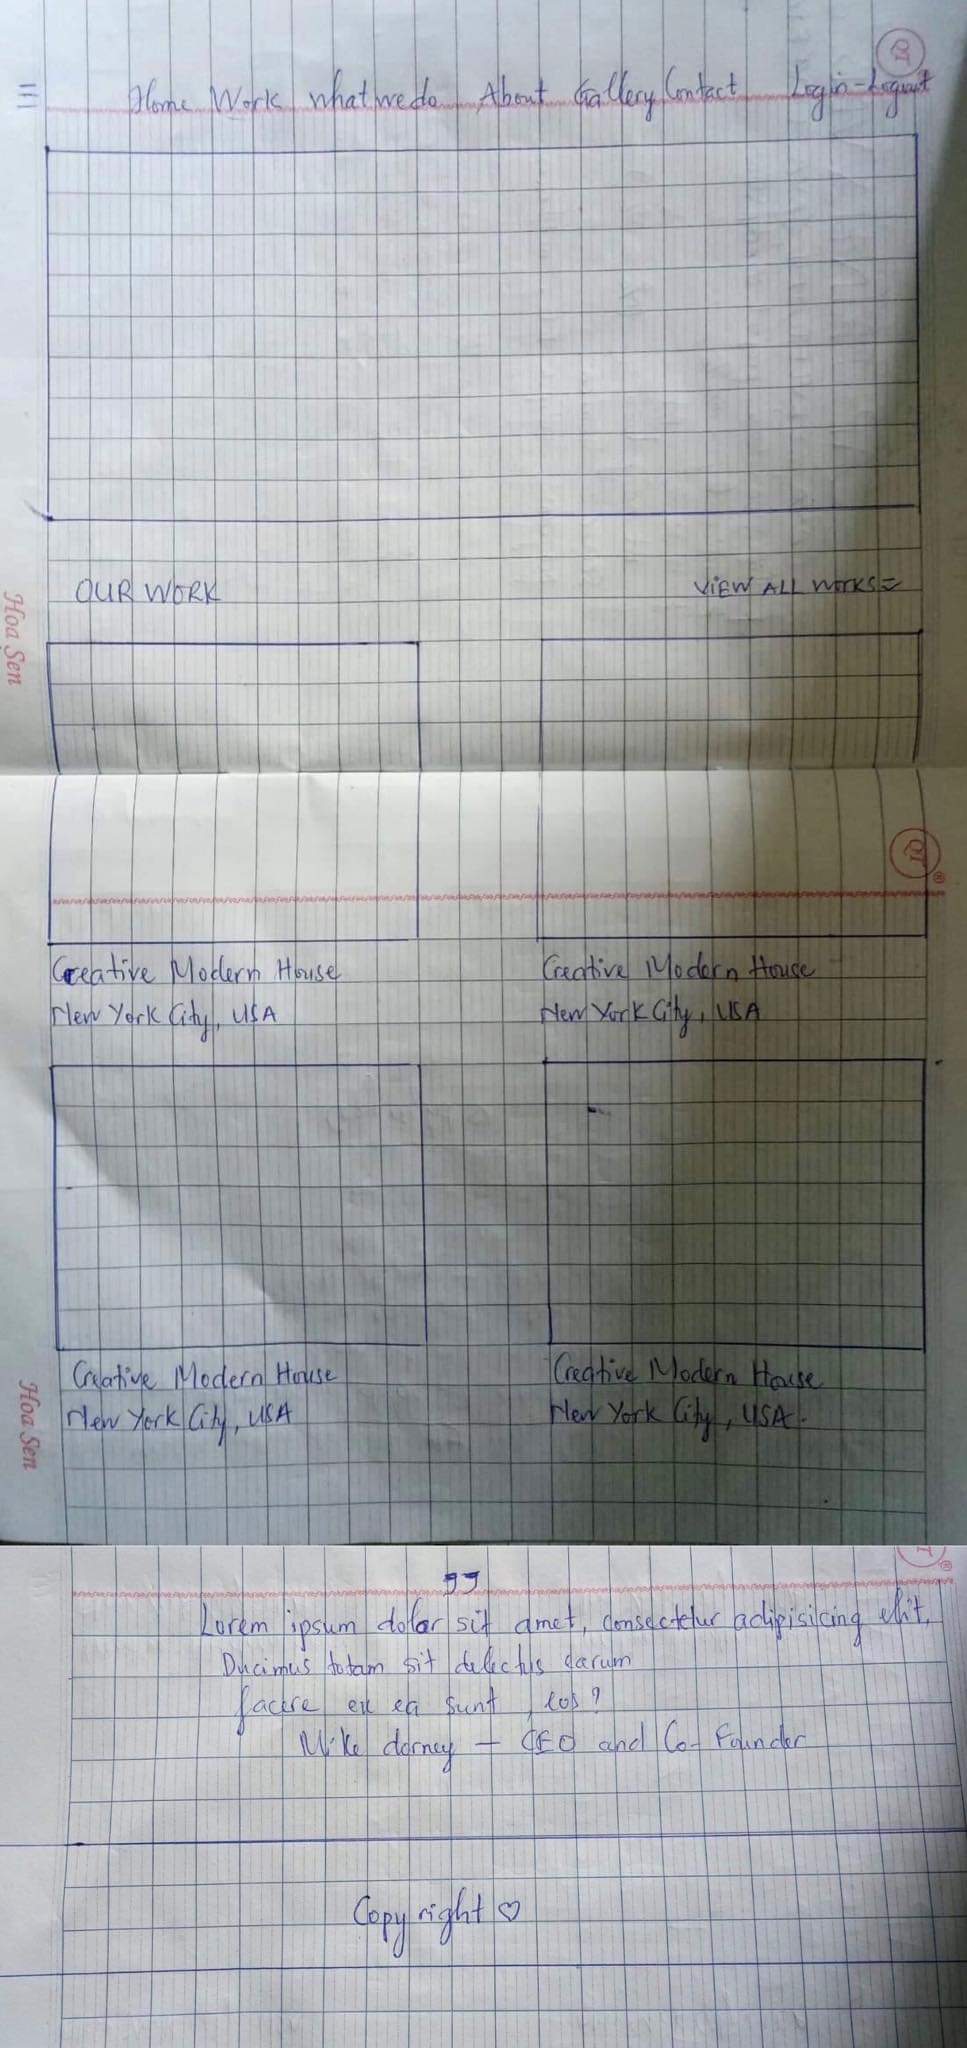 Home Work what we do About Gallery Contact Login-Logout
OUR WORK VIEW ALL WORKS
Hoa Sen
Creative Modern House Creative Modern House
New York City, USA New York City, USA
Creative Modern House Creative Modern House
New York City, USA New York City, USA.
Hoa Sen
"
Lorem ipsum dolor sit amet, consectetur adipisicing elit.
Ducimus totam sit delectus darum
facere ex ea sunt, eos?
Mike dorney - CEO and Co-Founder
Copy right ♡